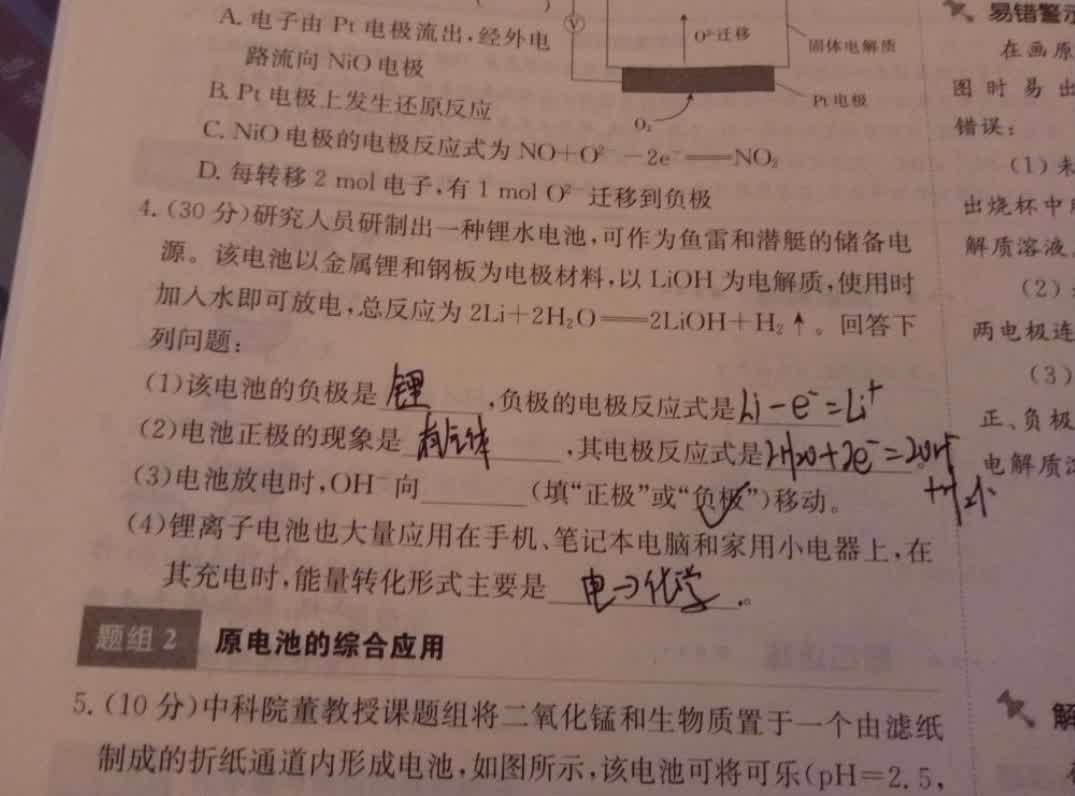 A. 电子由 Pt 电极流出,经外电
路流向 NiO 电极
B. Pt 电极上发生还原反应
C. NiO 电极的电极反应式为 NO+O²⁻-2e⁻══NO₂
D. 每转移 2 mol 电子,有 1 mol O²⁻ 迁移到负极
V
O²⁻迁移
固体电解质
Pt 电极
O₂
4. (30 分)研究人员研制出一种锂水电池,可作为鱼雷和潜艇的储备电
源。该电池以金属锂和钢板为电极材料,以 LiOH 为电解质,使用时
加入水即可放电,总反应为 2Li+2H₂O══2LiOH+H₂↑。回答下
列问题:
(1)该电池的负极是 锂 ,负极的电极反应式是 Li-e⁻=Li⁺
(2)电池正极的现象是 有气体 ,其电极反应式是 2H₂O+2e⁻=2OH⁻
+H₂↑
(3)电池放电时,OH⁻向______(填“正极”或“负极”)移动。
(4)锂离子电池也大量应用在手机、笔记本电脑和家用小电器上,在
其充电时,能量转化形式主要是 电→化学 。
题组 2 原电池的综合应用
5. (10 分)中科院董教授课题组将二氧化锰和生物质置于一个由滤纸
制成的折纸通道内形成电池,如图所示,该电池可将可乐(pH=2.5,
易错警示
在画原
图时易出
错误:
(1)未
出烧杯中
解质溶液
(2)
两电极连
(3)
正、负极
电解质
解